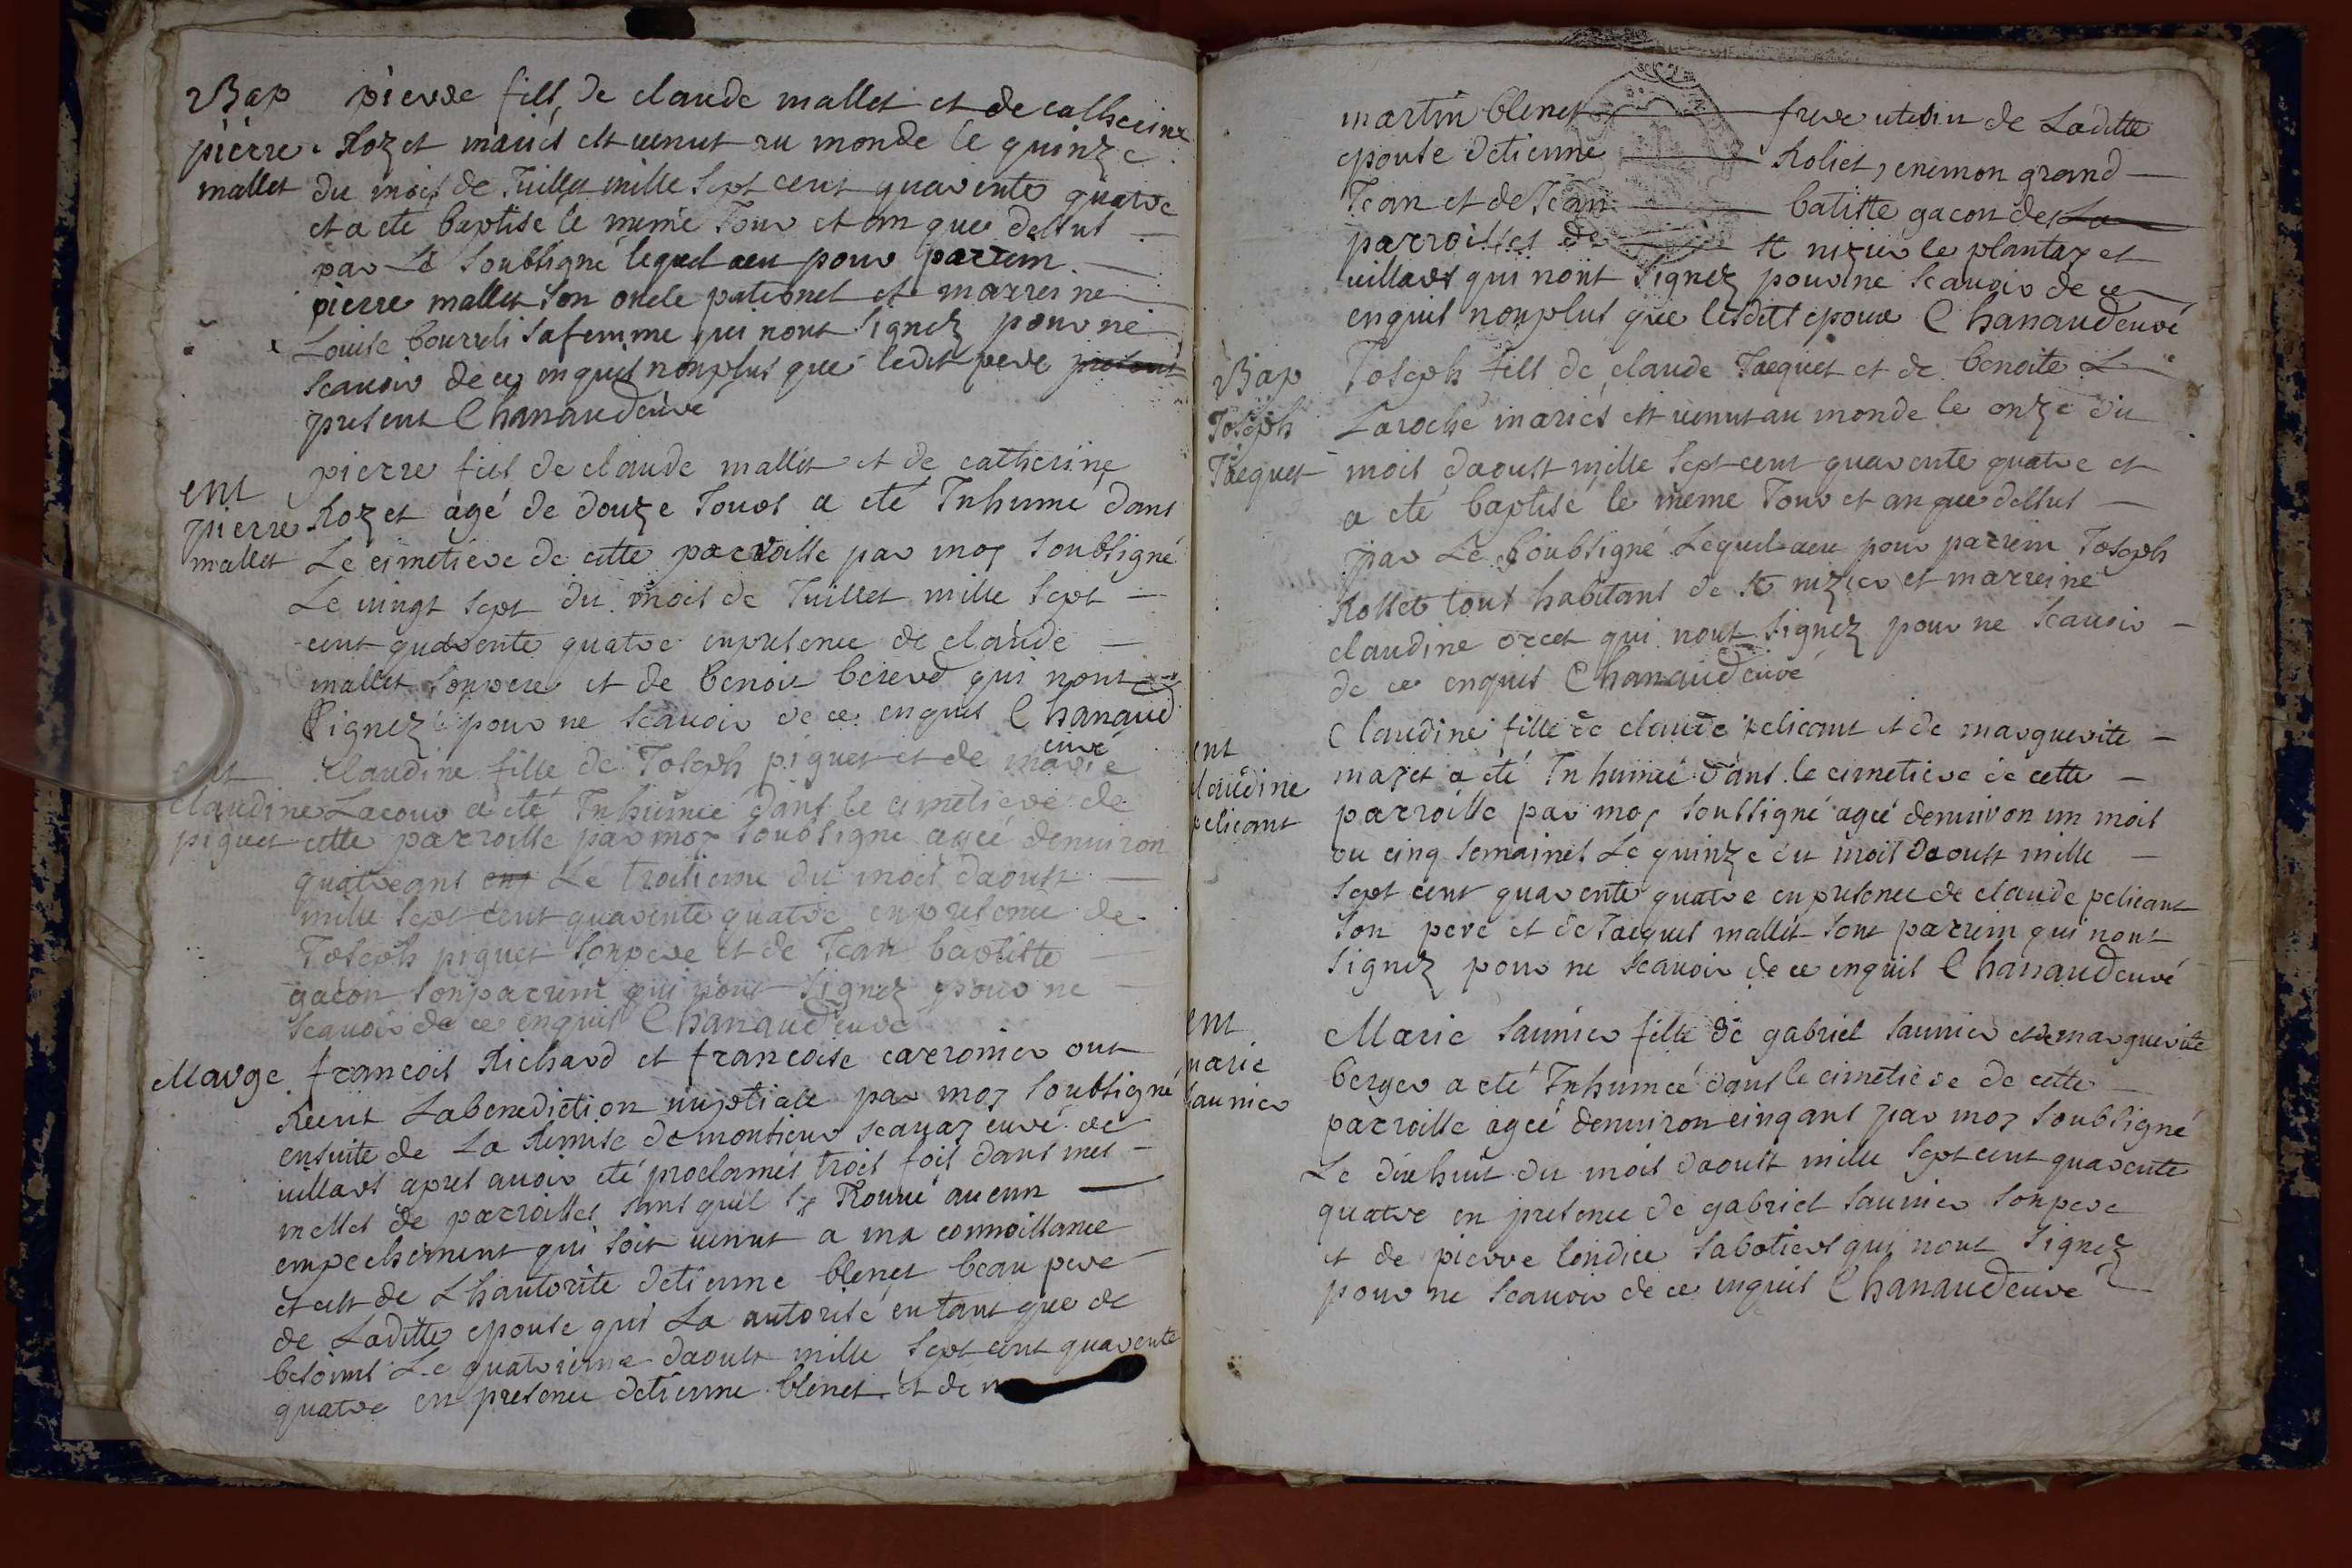 Bap pierre fils de claude mallet et de catherine
pierre Rozet mariés est venut au monde le quinze
mallet du mois de Juillet mille sept cent quarente quatre
et a eté baptisé le meme Jour et an que dessus
par Le soubsigné lequel aeu pour parrein
pierre mallet son oncle paternel et marreine
Louise bourreli safemme qui nont signez pour ne
scavoir de ce enquis nonplus que ledit pere present
present Chanaud curé
pierre fils de claude mallet et de catherine
ent
pierre Rozet agé de douze Jours a eté Inhumé dans
mallet Le cimetiere de cette parroisse par moy soubsigné
Le vingt sept du mois de Juillet mille sept
cent quarente quatre enpresence de claude
mallet sonpere et de benoit bererd qui nont
signez pour ne scavoir de ce enquis Chanaud
curé
ent Claudine fille de Joseph piquet et de marie
claudine Lacour a eté Inhumée dans le cimetiere de
piquet cette parroisse parmoy soubsigné agée denviron
quatreans Le troisieme du mois daoust
mille sept cent quarente quatre enpresence de
Joseph piquet sonpere et de Jean baptiste
gacon sonparrein qui nont signez pour ne
scavoir de ce enquis Chanaud curé
Marge francois Richard et francoise carronier ont
Receut Labenediction nuptiale par moy soubsigné
ensuite de La Remise de monsieur scavay curé de
villars apres avoir eté proclamés trois fois dans mes
messes de parroisses sans quil sy Trouvé aucun
empechement qui soit venut a ma connoissance
et cest de Lhautorite detienne blenet beau pere
de Laditte epouse qui La autorisé en tant que de
besoins Le quatrieme daoust mille sept cent quarente
quatre en presence detienne blenet et de
martin blenet frere uterin de Laditte
epouse detienne Roliet, enemon grand
Jean et de Jean batiste gacon des La
parroisses de st nizier le plantay et
villars qui nont signez pour ne scavoir de ce
enquis nonplus que lesdits epoux Chanaud curé
Bap Joseph fils de claude Jacquet et de benoite L
Joseph Laroche mariés est venut au monde le onze du
Jacquet mois daoust mille sept cent quarente quatre et
a eté baptisé le meme Jour et an que dessus
par Le soubsigné Lequel aeu pour parrein Joseph
Rosset tous habitans de st nizier et marreine
claudine orcet qui nont signez pour ne scavoir
de ce enquis Chanaud curé
Claudine fille de claude pelicant et de marguerite
ent
claudine mazet a eté Inhumée dans le cimetiere de cette
pelicant parroisse par moy soussigné agée denviron un mois
ou cinq semaines Le quinze du mois daoust mille
sept cent quarente quatre enpresence de claude pelicant
son pere et de Jacques mallet sont parrein qui nont
signez pour ne scavoir de ce enquis Chanaud curé
ent Marie saunier fille de gabriel saunier et de marguerite
marie berger a eté Inhumée dans le cimetiere de cette
saunier parroisse agée denviron cinqans par moy soubsigné
Le dixhuit du mois daoust mille sept cent quarente
quatre en presence de gabriel saunier sonpere
et de pierre londice sabotiers qui nont signez
pour ne scavoir de ce enquis Chanaud curé